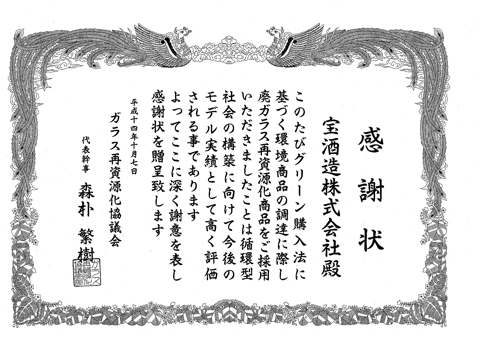 感謝状
宝酒造株式会社殿
このたびグリーン購入法に
基づく環境商品の調達に際し
廃ガラス再資源化商品をご採用
いただきましたことは循環型
社会の構築に向けて今後の
モデル実績として高く評価
される事であります
よってここに深く謝意を表し
感謝状を贈呈致します
平成十四年十月七日
ガラス再資源化協議会
代表幹事 森朴繁樹